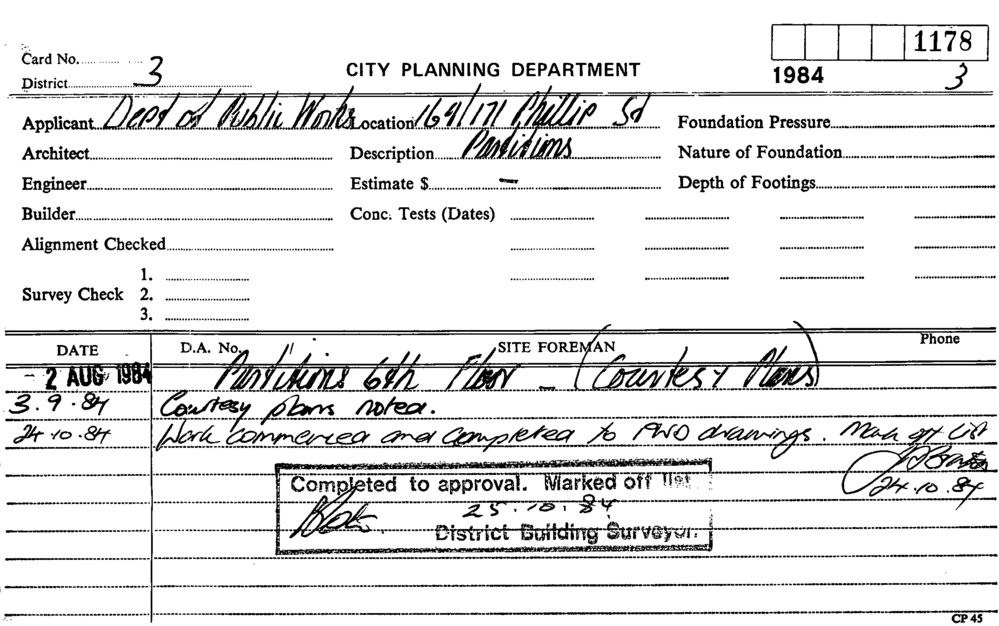 1178
Card No. 3
CITY PLANNING DEPARTMENT
1984 3
District
Applicant Dept of Public Works Location 169/171 Phillip St Foundation Pressure
Architect Description Partitions Nature of Foundation
Engineer Estimate $ – Depth of Footings
Builder Conc. Tests (Dates)
Alignment Checked
1.
Survey Check 2.
3.
DATE D.A. No. SITE FOREMAN Phone
- 2 AUG 1984 Partitions 6th Floor - (Courtesy Plans)
3.9.84 Courtesy plans noted.
24.10.84 Work commenced and completed to PWD drawings. Mark off list
24.10.84
Completed to approval. Marked off list
25.10.84
District Building Surveyor.
CP 45